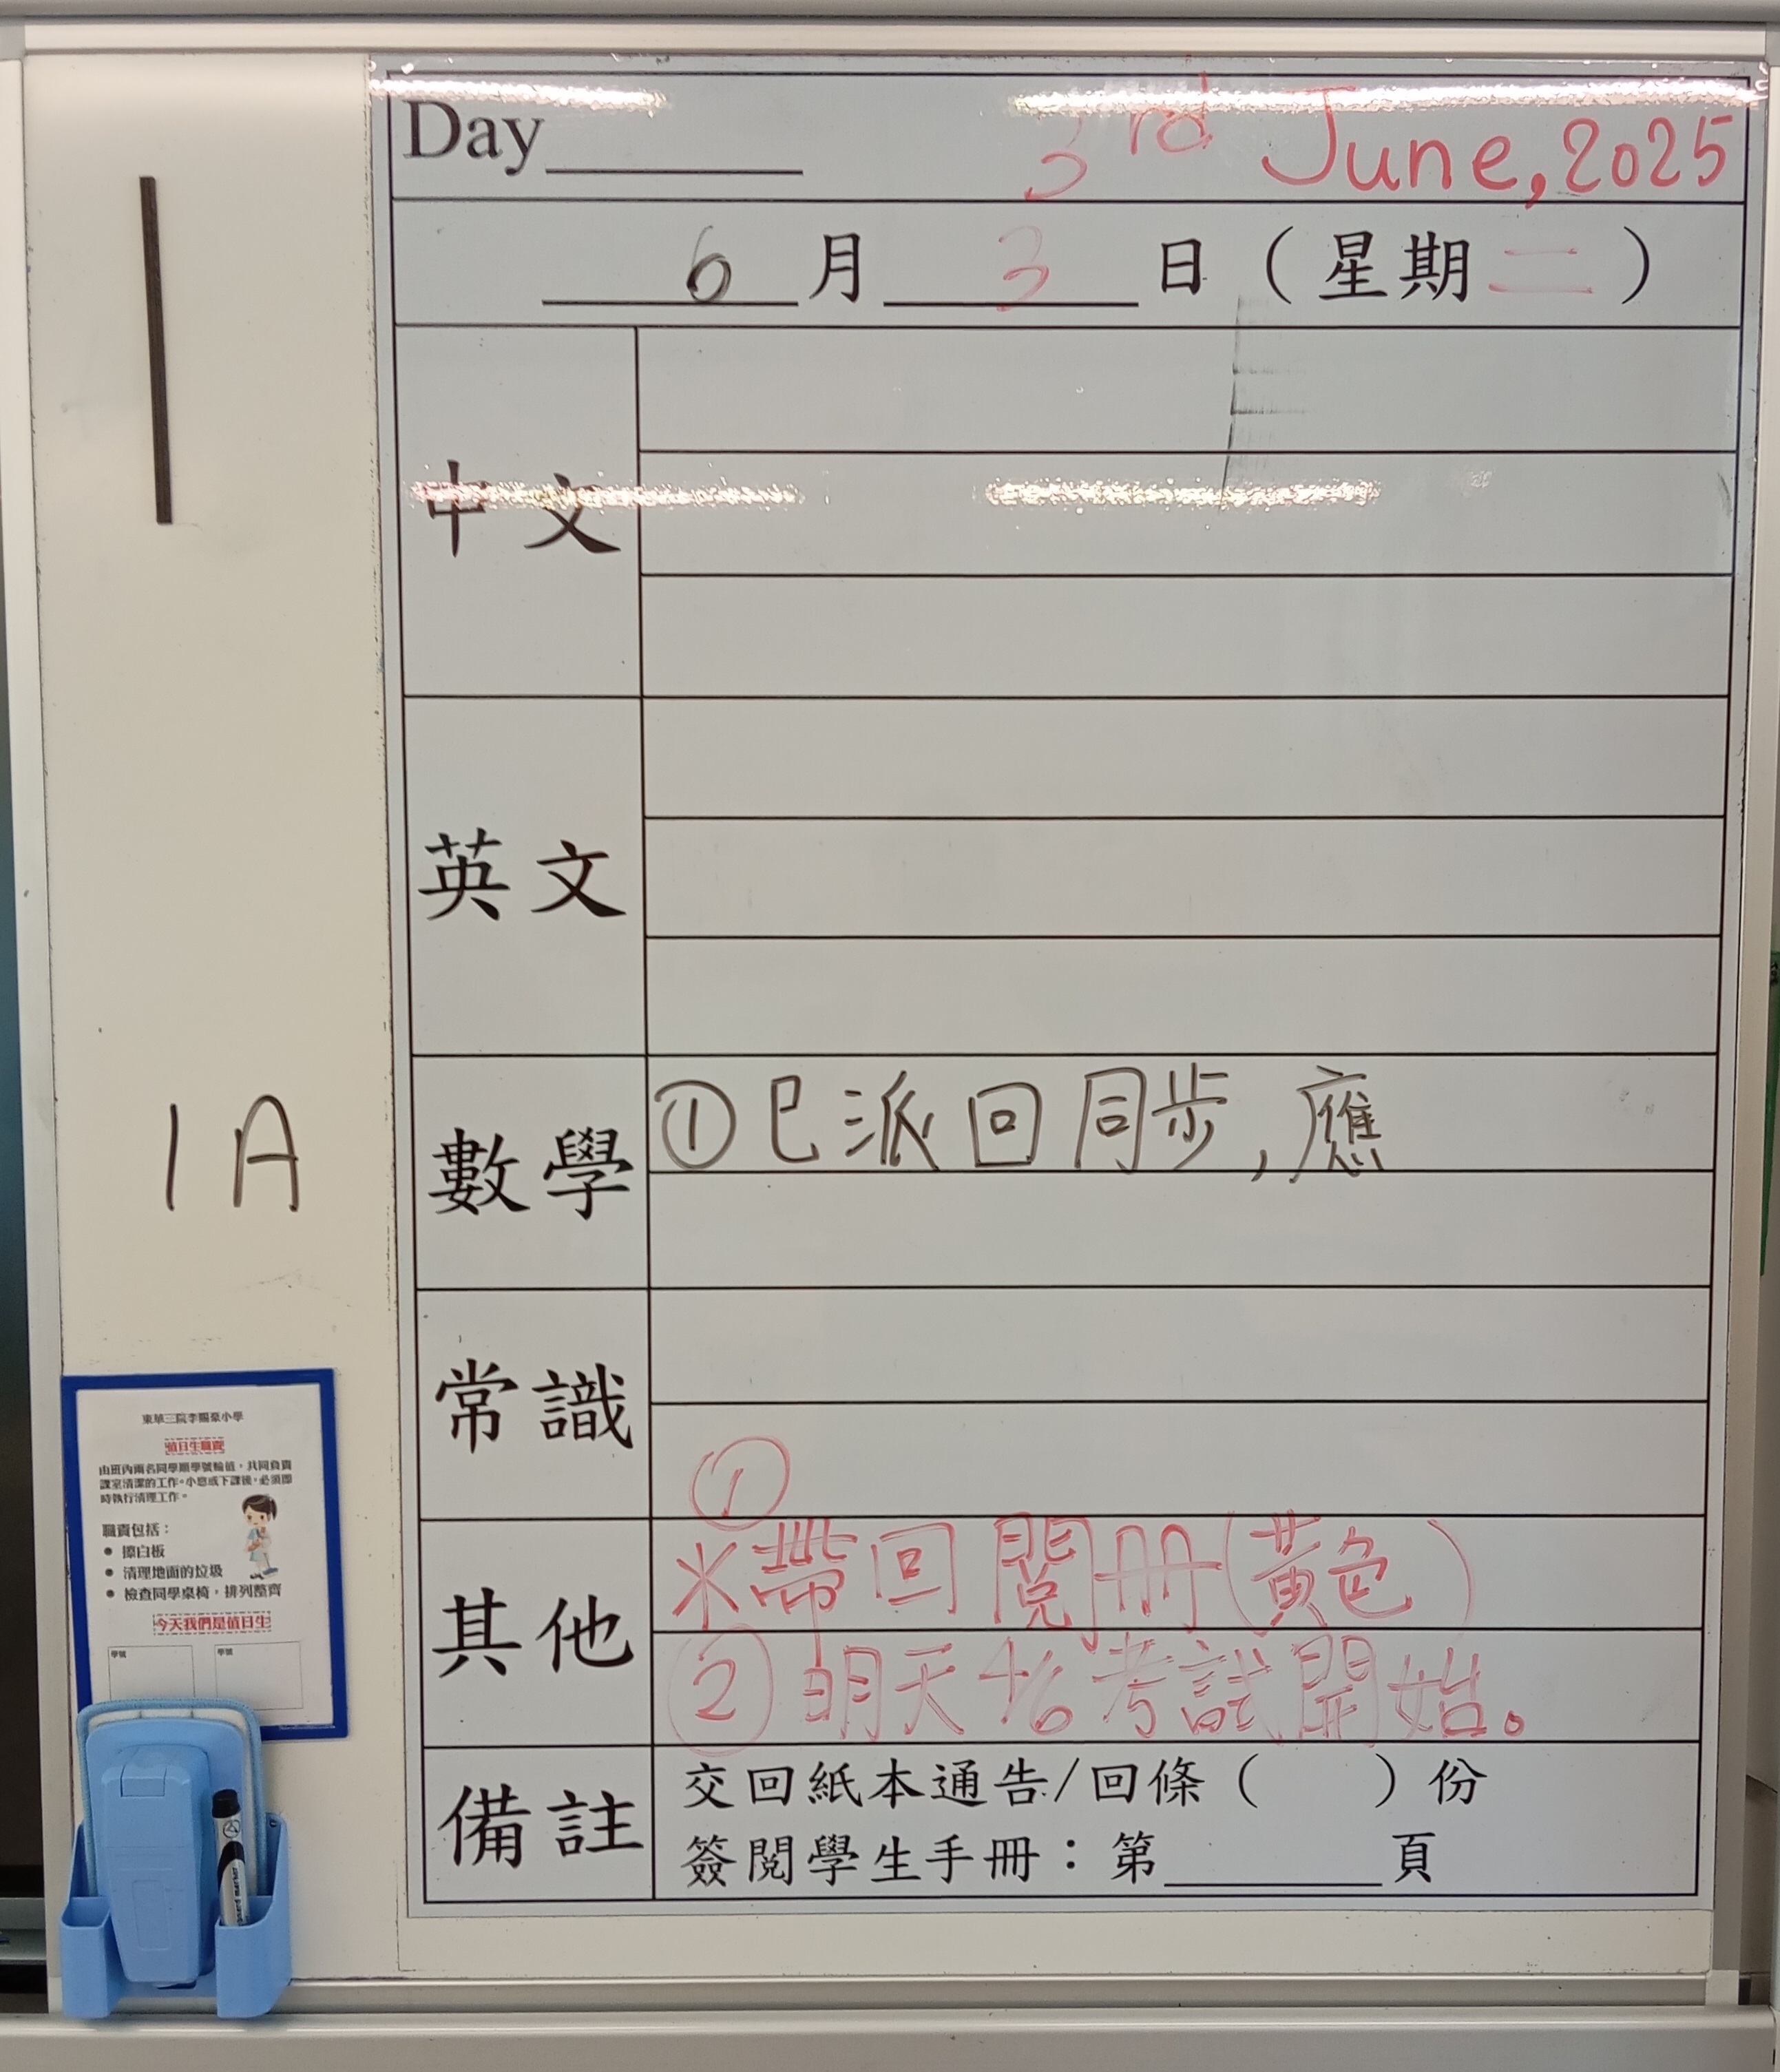 Day 3rd June, 2025
6 月 3 日 ( 星期 二 )
中文
英文
數學 ①已派回同步,應
常識
①
其他 *帶回閱冊(黃色)
②明天4/6考試開始。
備註 交回紙本通告/回條 ( ) 份
簽閱學生手冊：第 頁
1A
東華三院李賜豪小學
值日生職責
由班內兩名同學順學號輪值，共同負責
課室清潔的工作。小息或下課後，必須即
時執行清理工作。
職責包括：
● 擦白板
● 清理地面的垃圾
● 檢查同學桌椅，排列整齊
今天我們是值日生
學號 學號